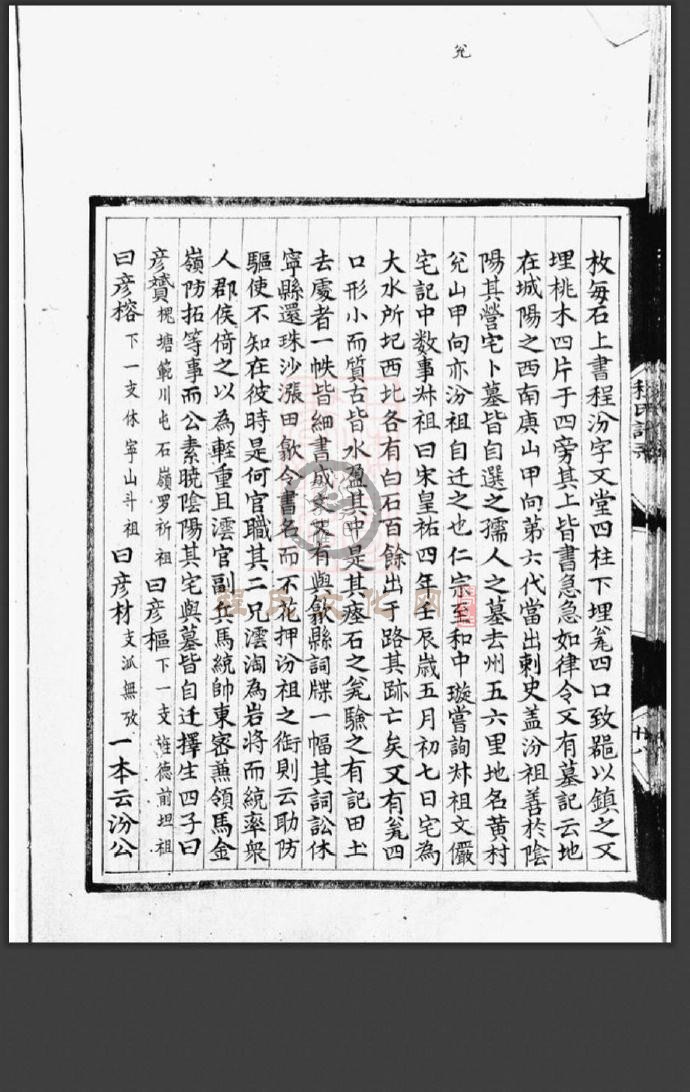 兊
枚每石上書程汾字又堂四柱下埋瓮四口致毉以鎮之又
埋桃木四片于四旁其上皆書急急如律令又有墓記云地
在城陽之西南庚山甲向第六代當出刺史盖汾祖善於陰
陽其營宅卜墓皆自選之孺人之墓去州五六里地名黄村
兊山甲向亦汾祖自迁之也仁宗至和中璇嘗詢𠦑祖文儼
宅記中数事𠦑祖曰宋皇祐四年壬辰歳五月初七日宅為
大水所圮西北各有白石百餘出于路其跡亡矣又有瓮四
口形小而質古皆水盈其中是其瘞石之瓮驗之有記田土
去處者一帙皆細書成文又有與歙縣詞牒一幅其詞訟休
寧縣還珠沙漲田歙令書名而不花押汾祖之銜則云助防
驅使不知在彼時是何官職其二兄澐淘為岩將而統率衆
人郡侯倚之以為輕重且澐官副兵馬統帥東密兼領馬金
嶺防拓等事而公素曉陰陽其宅與墓皆自迁擇生四子曰
彦贇槐塘範川屯石嶺罗祈祖曰彦樞下一支旌德前坦祖
曰彦榕下一支休寧山斗祖曰彦材支派無攷一本云汾公
程氏
廿八
程氏文化网